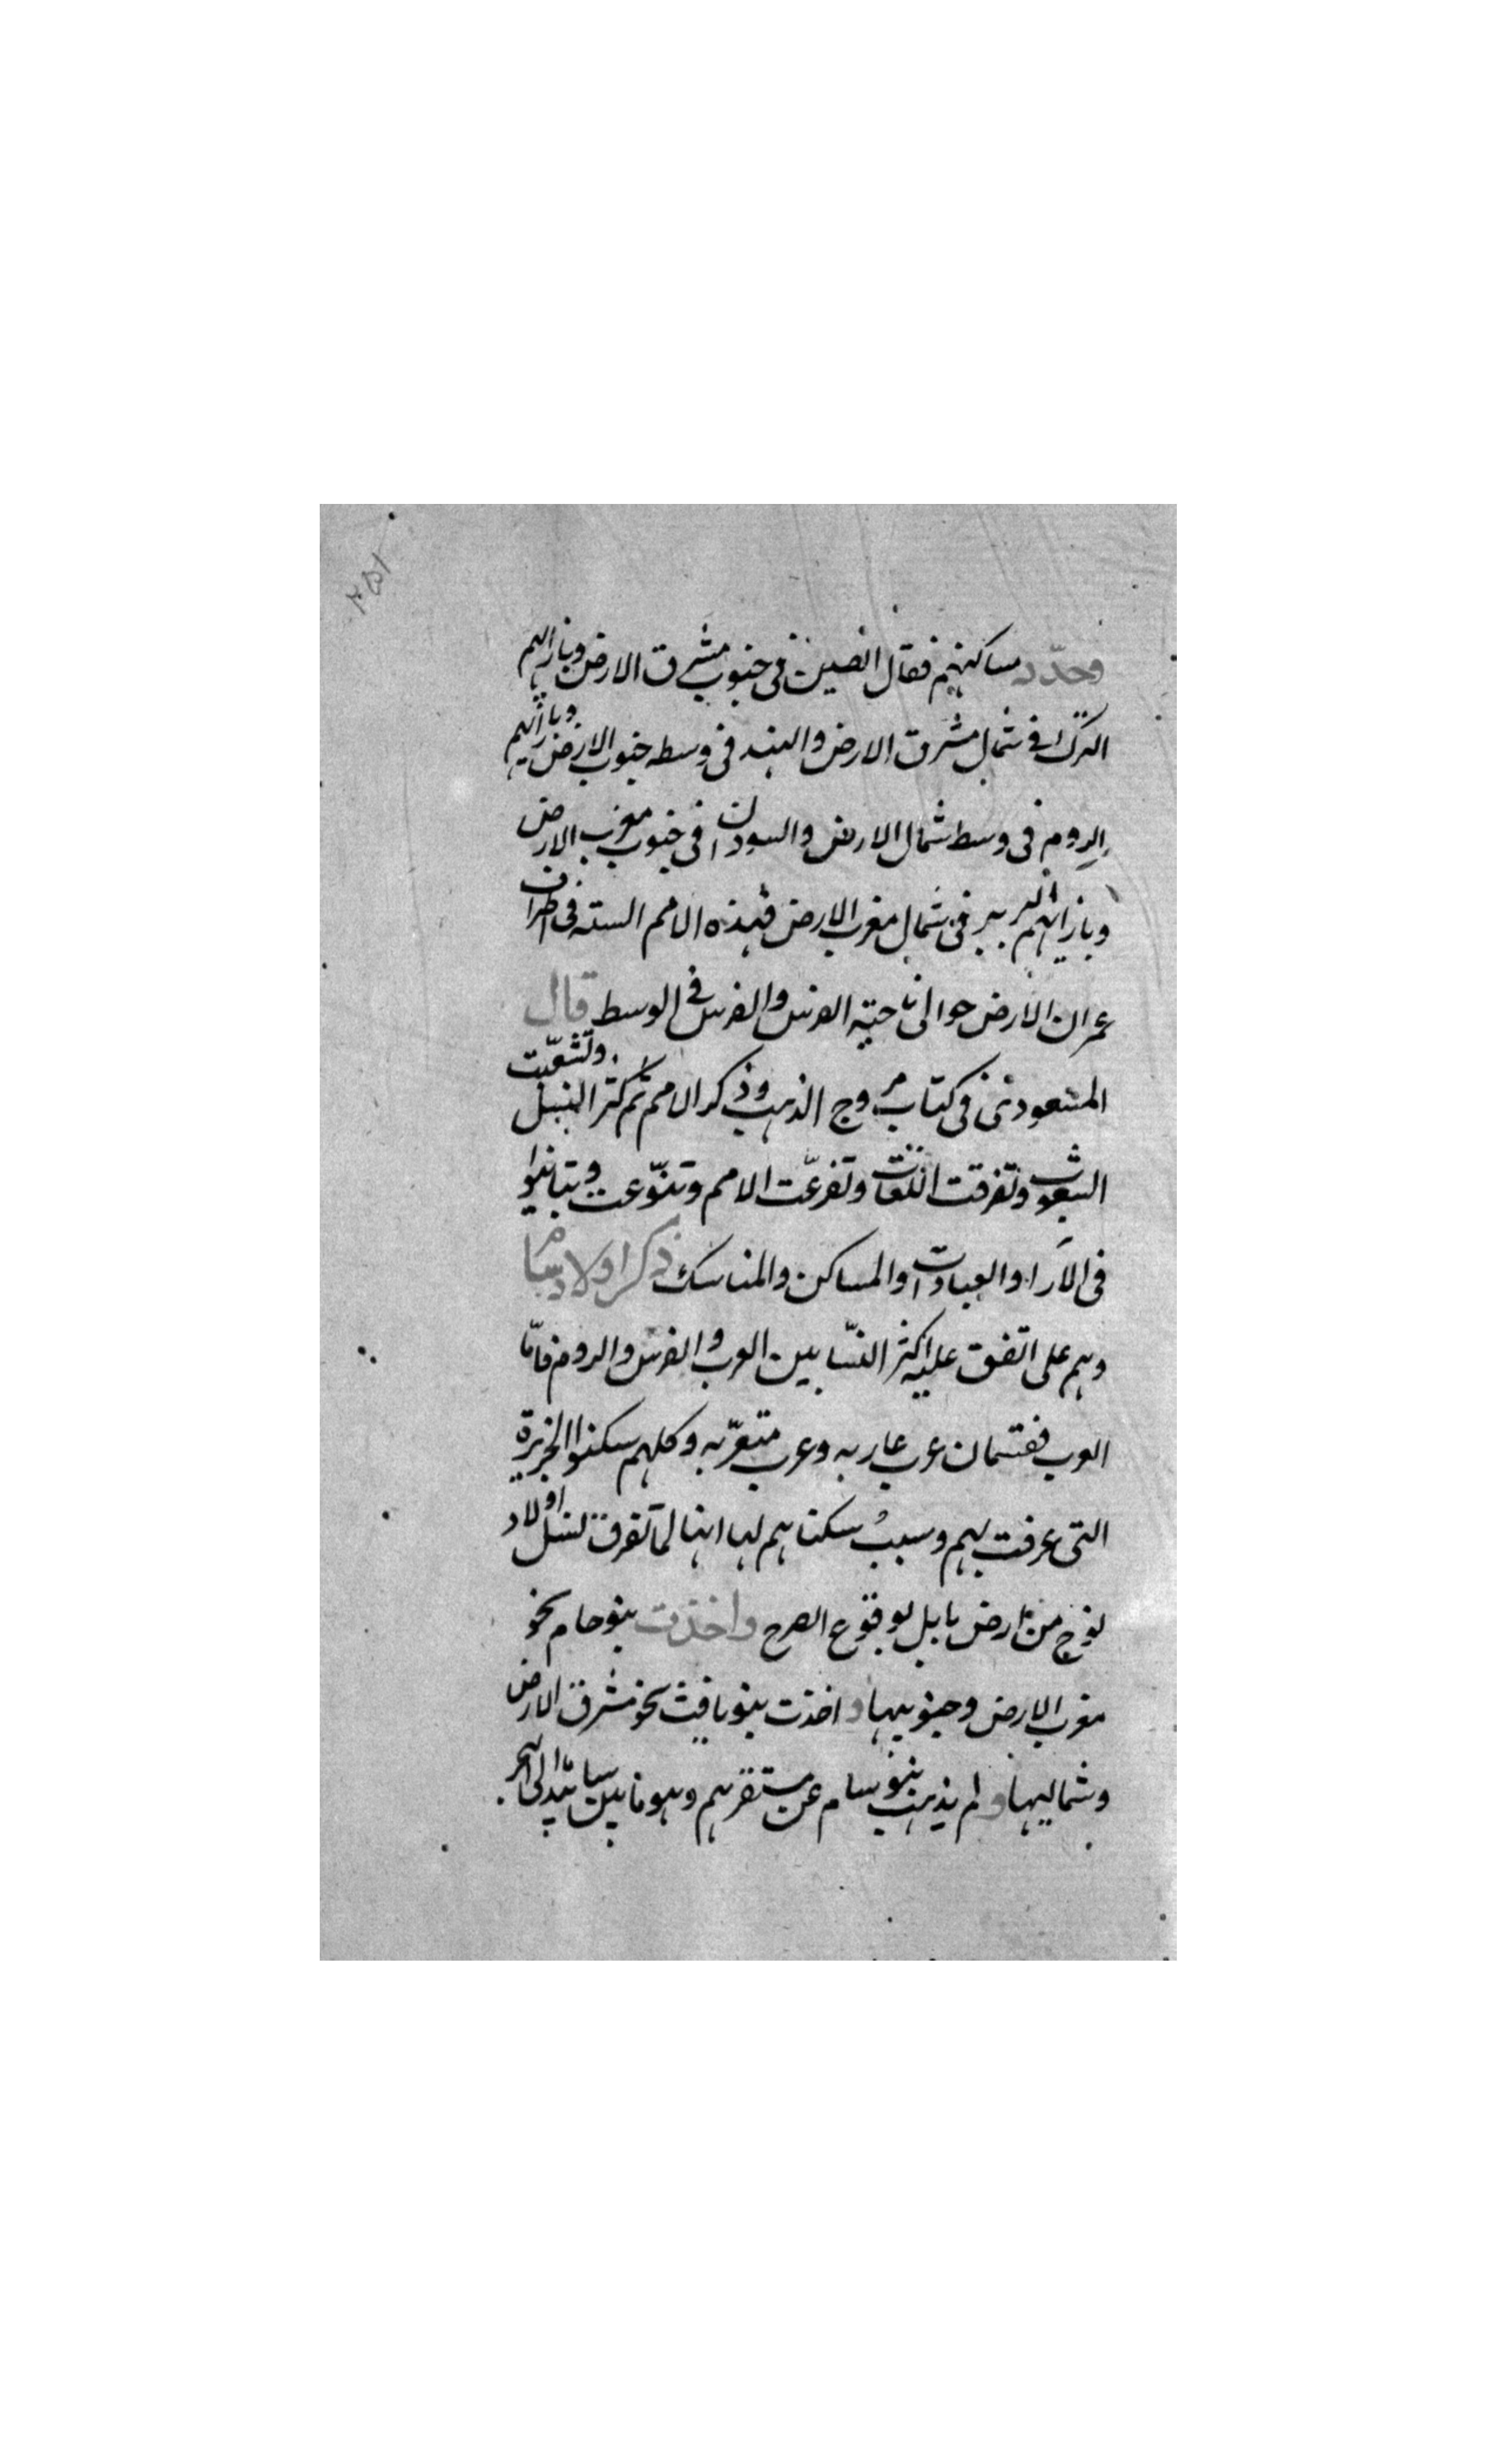 ٢٥١
وحدّد مساكنهم فقال الصين فى جنوب مشرق الارض وبازائهم
الترك فى شمال مشرق الارض والهند فى وسط جنوب الارض وبازائهم
الروم فى وسط شمال الارض والسودان فى جنوب مغرب الارض
وبازائهم البربر فى شمال مغرب الارض فهذه الامم السته فى اطراف
عمران الارض حوالى ناحيته الفرس والفرس فى الوسط قال
المسعودى فى كتاب مروج الذهب وذكر الامم ثم كثر النسل وتشعّبت
الشعوب وتفرقت اللغات وتفرعّت الامم وتنوّعت وتباينوا
فى الآراء والعبادات والمساكن والمناسك ذكر اولاد سام
وهم على اتفق عليه اكثر النسّابين العرب والفرس والروم فامّا
العرب فقسمان عرب عاربه وعرب متعرّبه وكلهم سكنوا الجزيرة
التى عرفت بهم وسبب سكناهم لها انها لما تفرق نسل اولاد
نوح من ارض بابل لوقوع الصرح واخذت بنو حام نحو
مغرب الارض وجنوبيها واخذت بنو يافث نحو مشرق الارض
وشماليها ولم يذهب بنو سام عن مستقرهم وهو ما بين الى البحر